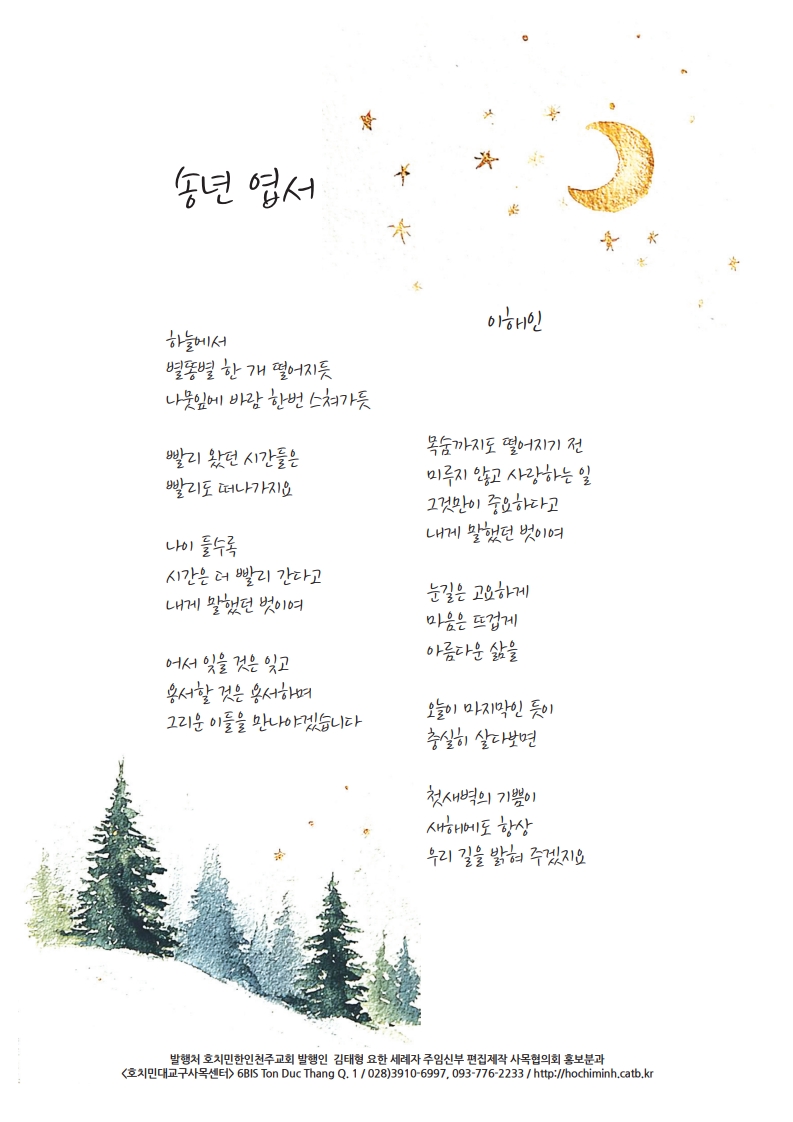 송년 엽서
이해인
하늘에서
별똥별 한 개 떨어지듯
나뭇잎에 바람 한번 스쳐가듯
빨리 왔던 시간들은
빨리도 떠나가지요
나이 들수록
시간은 더 빨리 간다고
내게 말했던 벗이여
어서 잊을 것은 잊고
용서할 것은 용서하며
그리운 이들을 만나야겠습니다
목숨까지도 떨어지기 전
미루지 않고 사랑하는 일
그것만이 중요하다고
내게 말했던 벗이여
눈길은 고요하게
마음은 뜨겁게
아름다운 삶을
오늘이 마지막인 듯이
충실히 살다보면
첫새벽의 기쁨이
새해에도 항상
우리 길을 밝혀 주겠지요
발행처 호치민한인천주교회 발행인 김태형 요한 세례자 주임신부 편집제작 사목협의회 홍보분과
<호치민대교구사목센터> 6BIS Ton Duc Thang Q. 1 / 028)3910-6997, 093-776-2233 / http://hochiminh.catb.kr